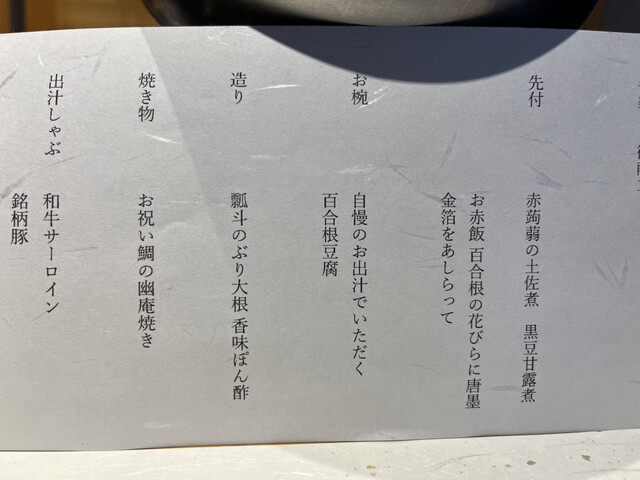 先付
赤蒟蒻の土佐煮 黒豆甘露煮
お赤飯 百合根の花びらに唐墨
金箔をあしらって
お椀
自慢のお出汁でいただく
百合根豆腐
造り
瓢斗のぶり大根 香味ぽん酢
焼き物
お祝い鯛の幽庵焼き
出汁しゃぶ
和牛サーロイン
銘柄豚